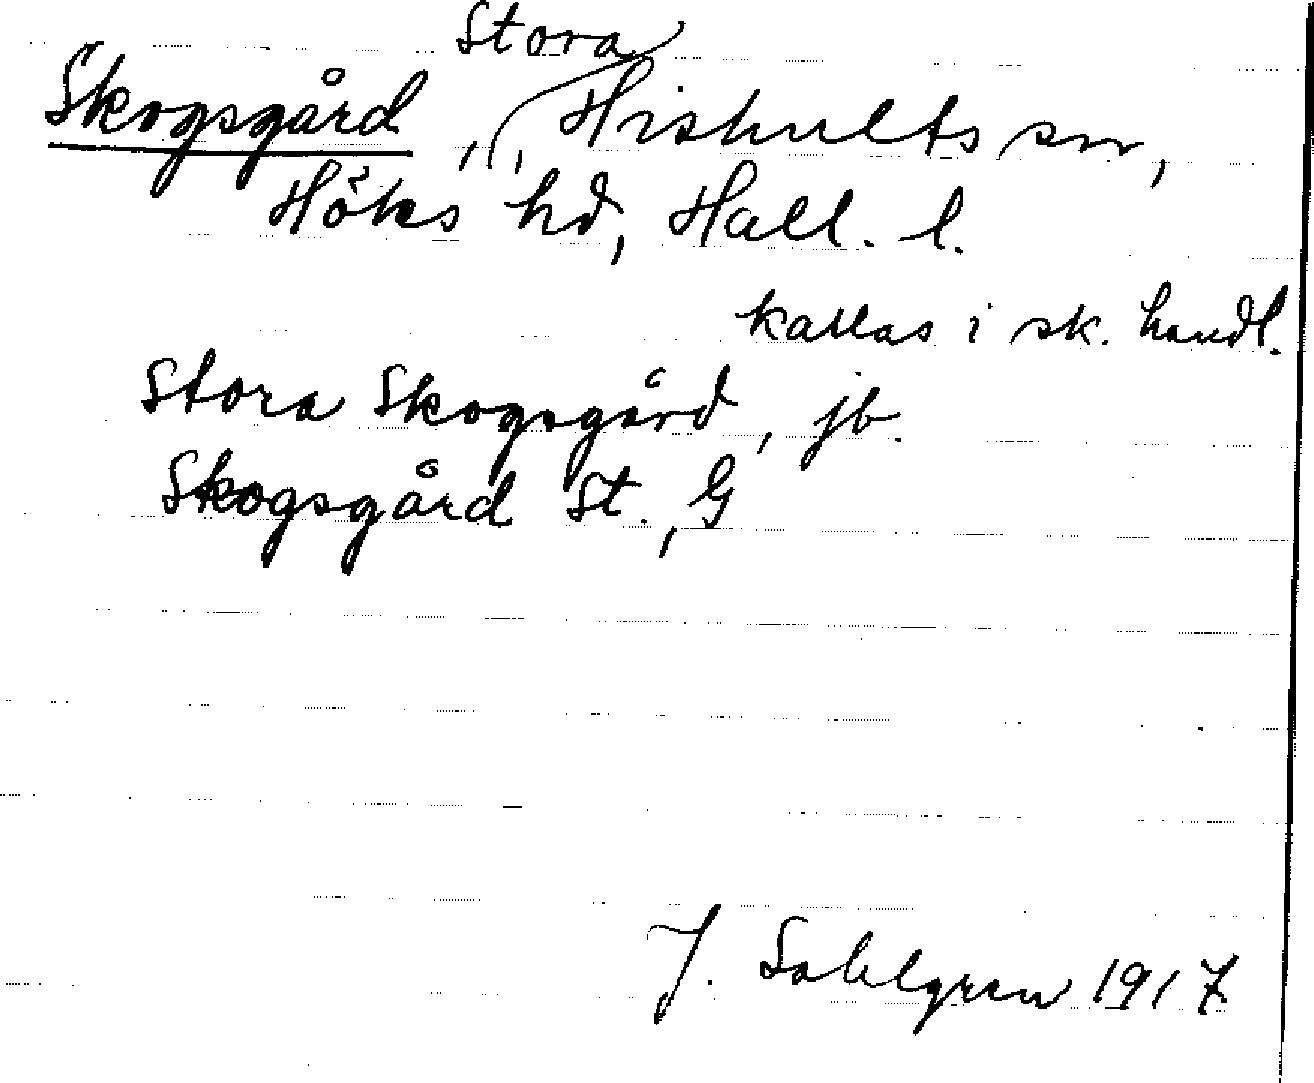 Stora
Skogsgård, , Hishults sn,
Höks hd, Hall. l.
kallas i sk. handl.
Stora Skogsgård, jb.
Skogsgård St., G
J. Sahlgren 1917